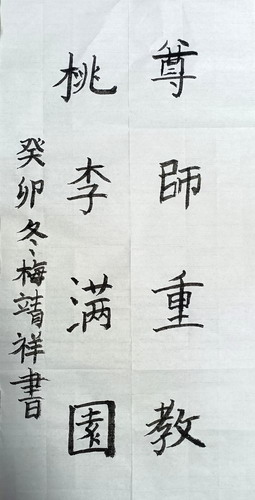 尊師重教
桃李满園
癸卯冬梅靖祥書